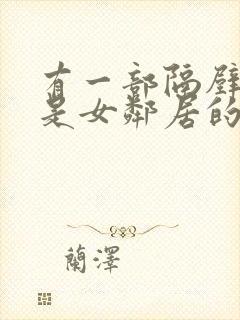 有一部隔壁
是女鄰居的
蘭澤